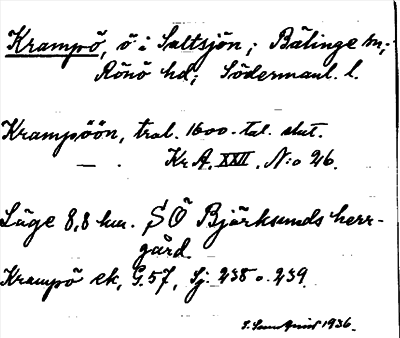 Krampö, ö i Saltsjön; Bälinge sn;
Rönö hd; Södermanl. l.
Krampöön, tral. 1600-tal. slut.
— . Kr A. XXII. N:o 26.
Läge 8,8 km. SÖ Björksunds herr-
gård.
Krampö ek, G.57, Sj. 238 o. 239.
1936.